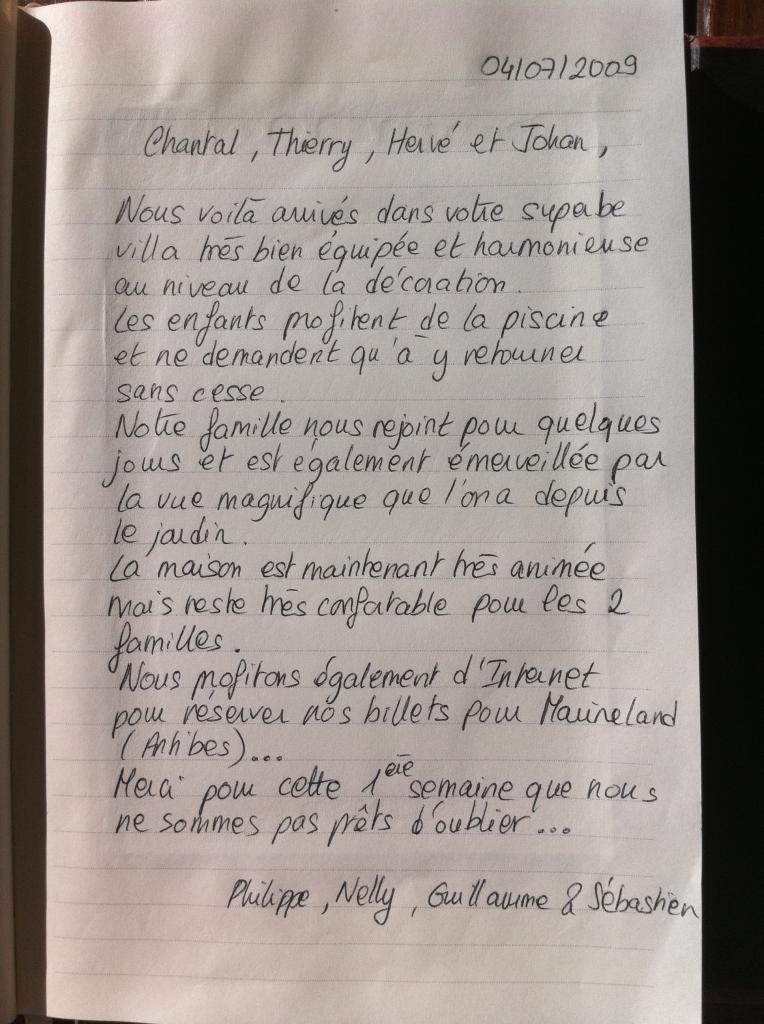 04/07/2009
Chantal, Thierry, Hervé et Johan,
Nous voilà arrivés dans votre superbe
villa très bien équipée et harmonieuse
au niveau de la décoration.
Les enfants profitent de la piscine
et ne demandent qu'à y retourner
sans cesse.
Notre famille nous rejoint pour quelques
jours et est également émerveillée par
la vue magnifique que l'on a depuis
le jardin.
La maison est maintenant très animée
mais reste très confortable pour les 2
familles.
Nous profitons également d'Internet
pour réserver nos billets pour Marineland
(Antibes)...
Merci pour cette 1ère semaine que nous
ne sommes pas prêts d'oublier...
Philippe, Nelly, Guillaume & Sébastien